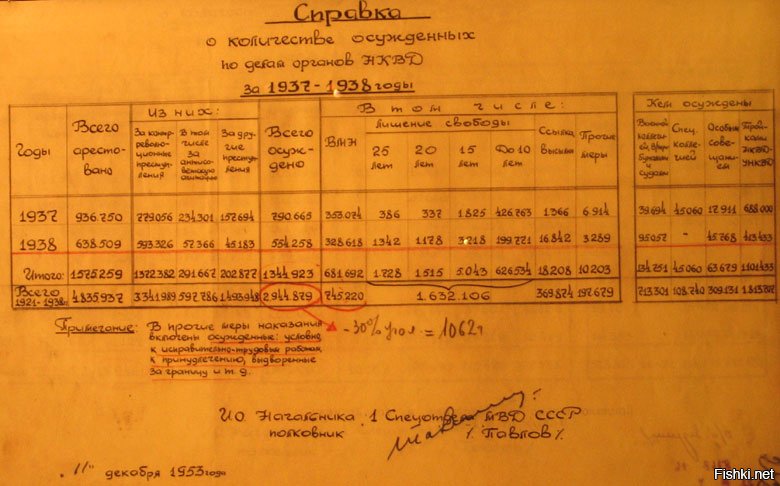 Справка
о количестве осужденных
по делам органов НКВД
за 1937-1938 годы
Годы
Всего арестовано
Из них:
За контрреволюционные преступления
В том числе за антисоветскую агитацию
За другие преступления
Всего осуждено
В том числе:
ВМН
лишение свободы
25 лет
20 лет
15 лет
До 10 лет
Ссылка, высылка
Прочие меры
Кем осуждены
Спец. коллегией
Особым совещанием
Тройками НКВД-УНКВД
1937 936.750 779.056 234.301 157.694 790.665 353.074 386 337 1.825 426.763 1.366 6.914 39.694 45.060 17.911 688.000
1938 638.509 593.326 57.366 45.183 554.258 328.618 1342 1178 3.218 199.771 16.842 3.289 95.057 " 45.768 413.433
Итого: 1.575.259 1.372.382 291.667 202.877 1.344.923 681.692 1.728 1.515 5.043 626.534 18.208 10.203 134.751 45.060 63.679 1.101.433
Всего 1921-1938гг 4.835.937 3.341.989 1.493.948 2.944.879 745.220 1.632.106 369.874 197.679 713.301 108.740 309.131
Примечание: В прочие меры наказания
включены осужденные: условно
к исправительно-трудовым работам,
к принудлечению, выдворенные
за границу и т.д.
-30% угол = 1062т
ИО Начальника 1 Спецотдела МВД СССР
полковник /Павлов/
„11" декабря 1953 года
Fishki.net